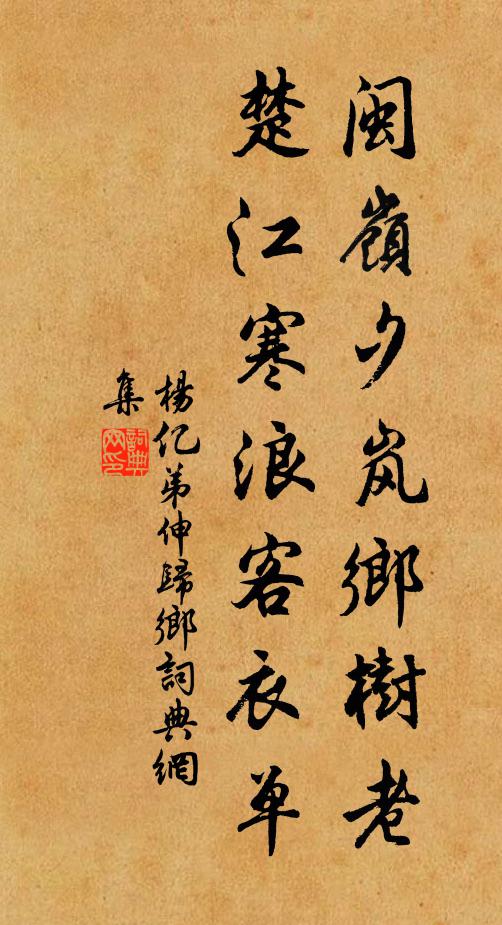 闽嶺夕岚鄉樹老
楚江寒浪客衣单
楊亿弟伸歸鄉詞典網
集
詞典網印